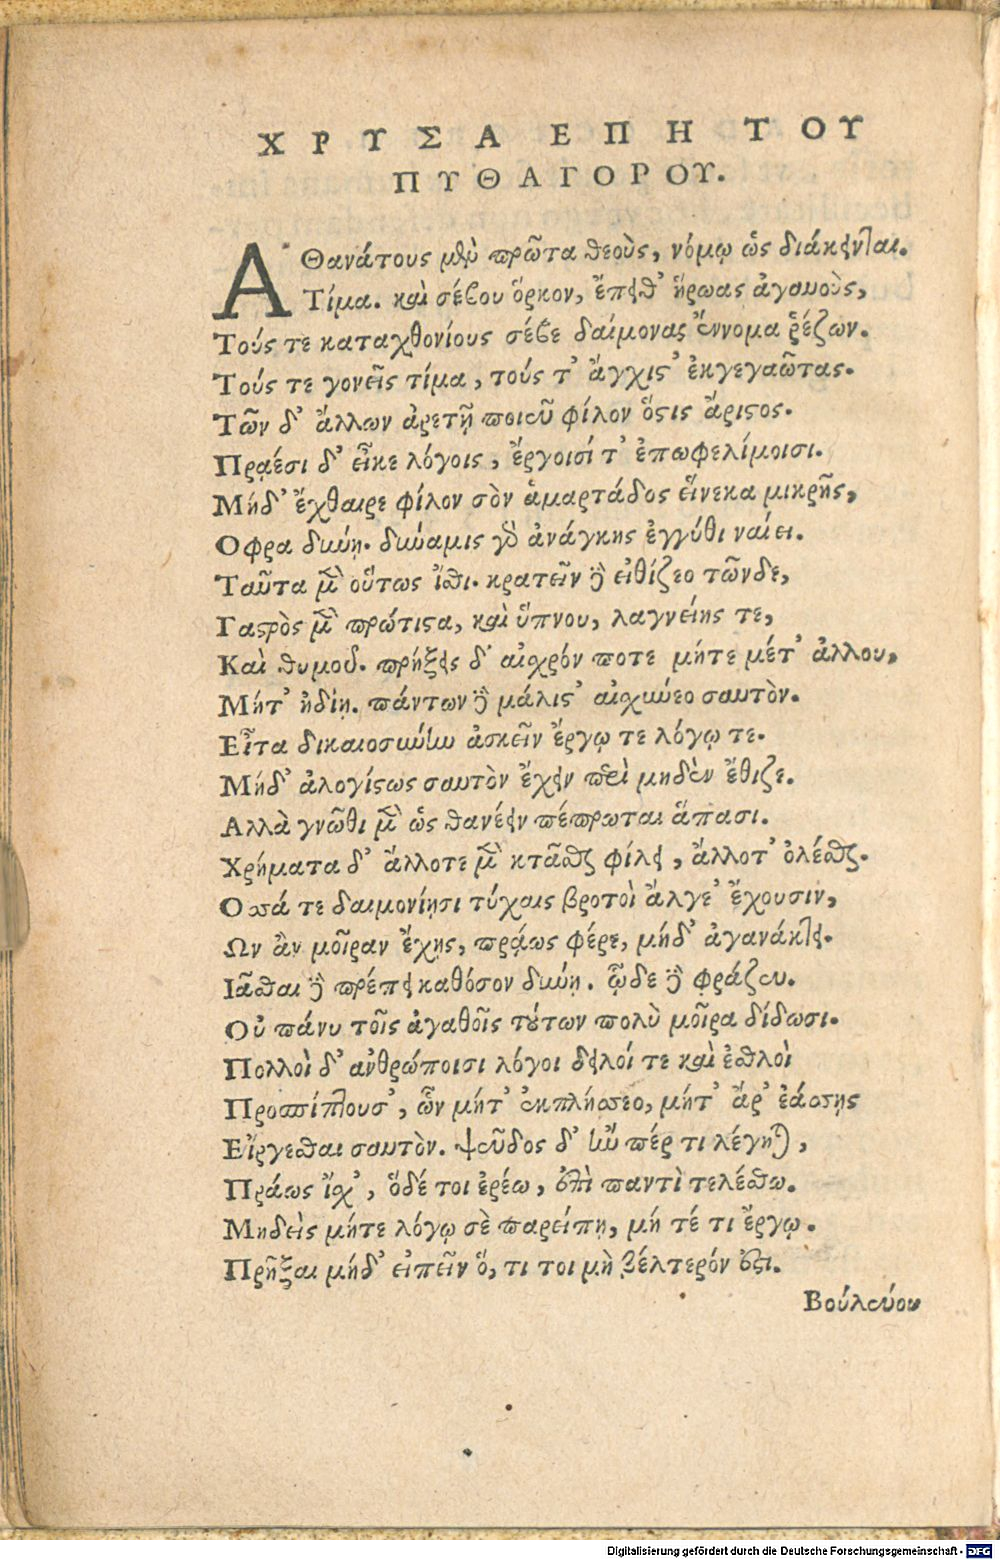 ΧΡΥΣΑ ΕΠΗ ΤΟΥ
ΠΥΘΑΓΟΡΟΥ.
ΑΘανάτους μὲν πρῶτα θεοὺς, νόμῳ ὡς διάκεινται.
Τίμα. καὶ σέβου ὅρκον, ἔπειθ' ἥρωας ἀγαυοὺς,
Τούς τε καταχθονίους σέβε δαίμονας ἔννομα ῥέζων.
Τούς τε γονεῖς τίμα, τούς τ' ἄγχιστ' ἐκγεγαῶτας.
Τῶν δ' ἄλλων ἀρετῇ ποιεῦ φίλον ὅστις ἄριστος.
Πραέσι δ' εἶκε λόγοις, ἔργοισί τ' ἐπωφελίμοισι.
Μήδ' ἔχθαιρε φίλον σὸν ἁμαρτάδος εἵνεκα μικρῆς,
Οφρα δύνῃ. δύναμις γὰρ ἀνάγκης ἐγγύθι ναίει.
Ταῦτα μὲν οὕτως ἴσθι. κρατεῖν δὲ εἰθίζεο τῶνδε,
Γαστρὸς μὲν πρώτιστα, καὶ ὕπνου, λαγνείης τε,
Καὶ θυμοῦ. πρήξεις δ' αἰσχρόν ποτε μήτε μέτ' ἄλλου,
Μήτ' ἠδίῃ. πάντων δὲ μάλιστ' αἰσχύνεο σαυτὸν.
Εἶτα δικαιοσύνην ἀσκεῖν ἔργῳ τε λόγῳ τε.
Μήδ' ἀλογίστως σαυτὸν ἔχειν περὶ μηδὲν ἔθιζε.
Αλλὰ γνῶθι μὲν ὡς θανέειν πέπρωται ἅπασι.
Χρήματα δ' ἄλλοτε μὲν κτᾶσθαι φίλει, ἄλλοτ' ὀλέσθαι.
Οσσά τε δαιμονίῃσι τύχαις βροτοὶ ἄλγε' ἔχουσιν,
Ων ἂν μοῖραν ἔχῃς, πρᾴως φέρε, μήδ' ἀγανάκτει.
Ιᾶσθαι δὲ πρέπει καθόσον δύνῃ. ᾧδε δὲ φράζευ.
Οὐ πάνυ τοῖς ἀγαθοῖς τούτων πολὺ μοῖρα δίδωσι.
Πολλοὶ δ' ἀνθρώποισι λόγοι δειλοί τε καὶ ἐσθλοὶ
Προσπίπτουσ', ὧν μήτ' ἐκπλήσσεο, μήτ' ἄρ' ἐάσῃς
Εἴργεσθαι σαυτὸν. ψεῦδος δ' ἢν πέρ τι λέγηται,
Πράως ἴσχ', ὅδέ τοι ἐρέω, ἐπὶ παντὶ τελέσθω.
Μηδεὶς μήτε λόγῳ σὲ παρείπῃ, μή τέ τι ἔργῳ.
Πρῆξαι μήδ' εἰπεῖν ὅ, τι τοι μὴ βέλτερόν ἐστι.
Βούλευου
Digitalisierung gefördert durch die Deutsche Forschungsgemeinschaft - DFG